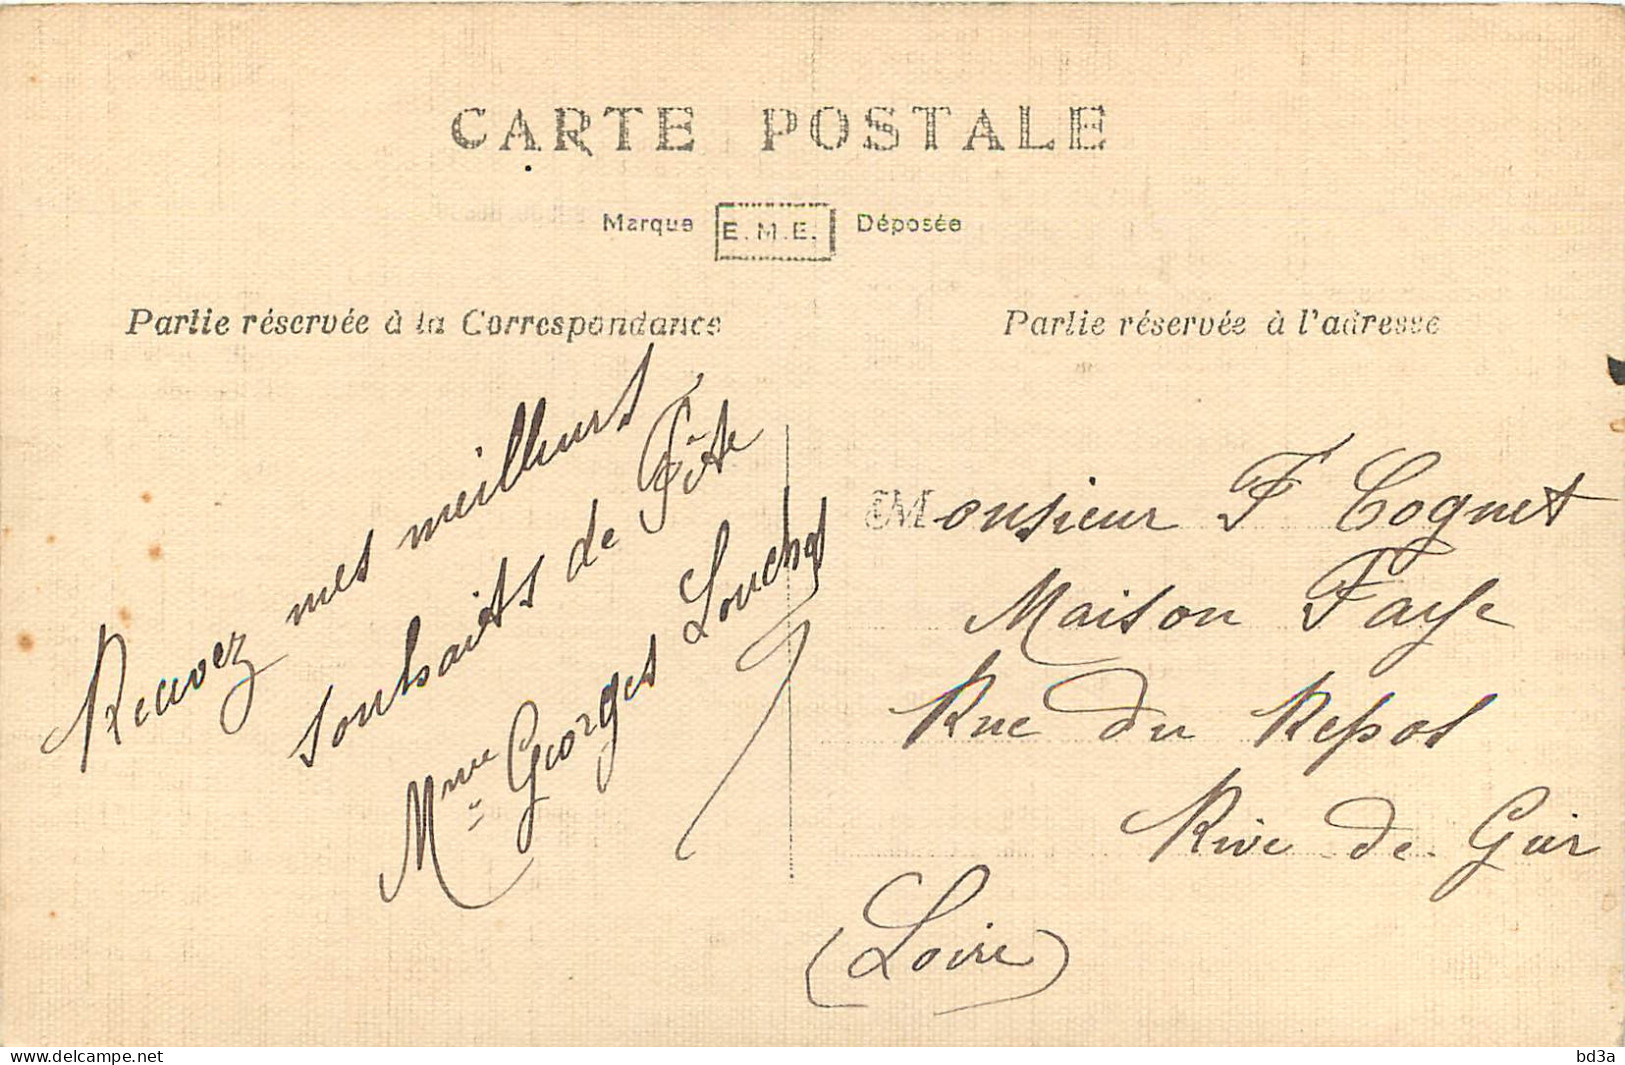 CARTE POSTALE
Marque E.M.E. Déposée
Partie réservée à la Correspondance
Partie réservée à l'adresse
Recevez mes meilleurs
souhaits de Fête
Mme Georges
Monsieur F Cognet
Maison Faye
Rue du Repos
Rive de Gier
(Loire)
delcampe.net
bd3a